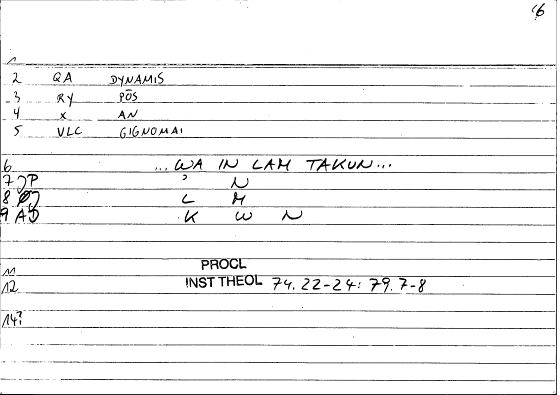 6
1
2 QA DYNAMIS
3 RY PŌS
4 X AN
5 VLC GIGNOMAI
6 ...WA IN LAM TAKUN...
7 JP ʾ N
8 L M
9 AD K W N
11
12 PROCL INST THEOL 74.22-24: 79.7-8
14?